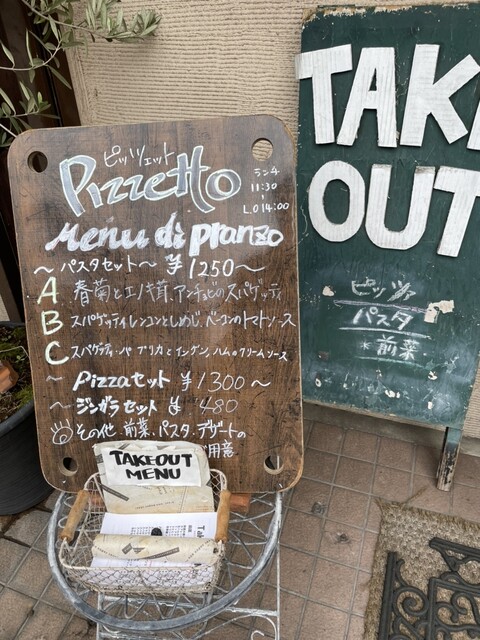 ピッツェット
Pizzetto
ランチ
11:30
~
L.O 14:00
Menu di pranzo
～パスタセット～ ¥1250～
A 春菊とエノキ茸、アンチョビのスパゲッティ
B スパゲッティ レンコンとしめじ、ベーコンのトマトソース
C スパゲッティ・パプリカとインゲン、ハムのクリームソース
～ Pizzaセット ¥1300～
～ジンガラセット ¥ 480
その他、前菜、パスタ、デザートの
用意
TAKEOUT
MENU
TAKE
OUT
ピッツァ
パスタ
前菜